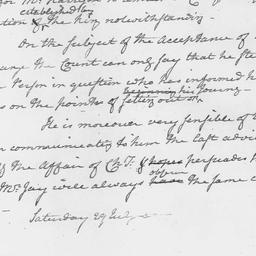 established by
of the king notwithstanding
On the subject of the Acceptance of
the Count can only say that he
Person in question who has informed h
on the point of setting out on
his journey
He is moreover very sensible of
communicated to him the last advi
of the Affair of Ch: T: & hopes persuades h
observe
Mr. Jay will always have the same c
Saturday 29 July